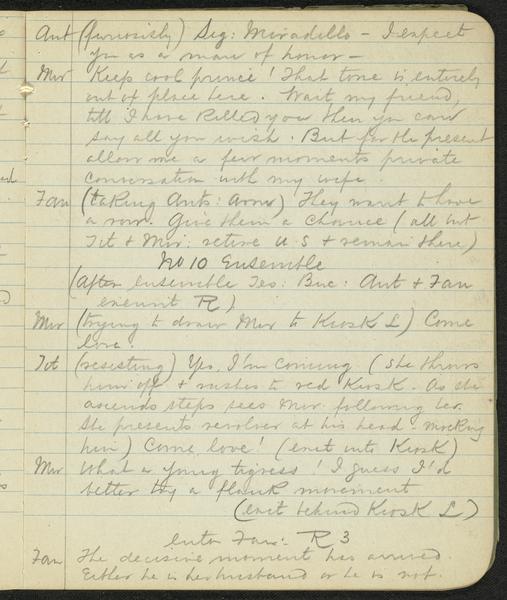 Ant (furiously) Sig: Miradillo - I expect
you as a man of honor -
Mir Keep cool prince! That tone is entirely
out of place here. Wait my friend,
till I have killed you then you can
say all you wish. But for the present
allow me a few moments private
conversation with my wife.
Fan (taking Ants: arm) They want to have
a row. Give them a chance (all but
Tit & Mir: retire U.S & remain there)
No 10 Ensemble
(after ensemble Tes: Buc: Ant & Fan
exeunt R)
Mir (trying to draw Mir to Kiosk L) Come
love.
Tit (resisting) Yes, I'm coming (she throws
him off & rushes to red Kiosk. As she
ascends steps sees Mir: following her.
She presents revolver at his head. mocking
him) Come, love! (exit into Kiosk)
Mir What a young tigress! I guess I'd
better try a flank movement
(exit behind Kiosk L)
enter Fan: R 3
Fan The decisive moment has arrived.
Either he is her husband or he is not.